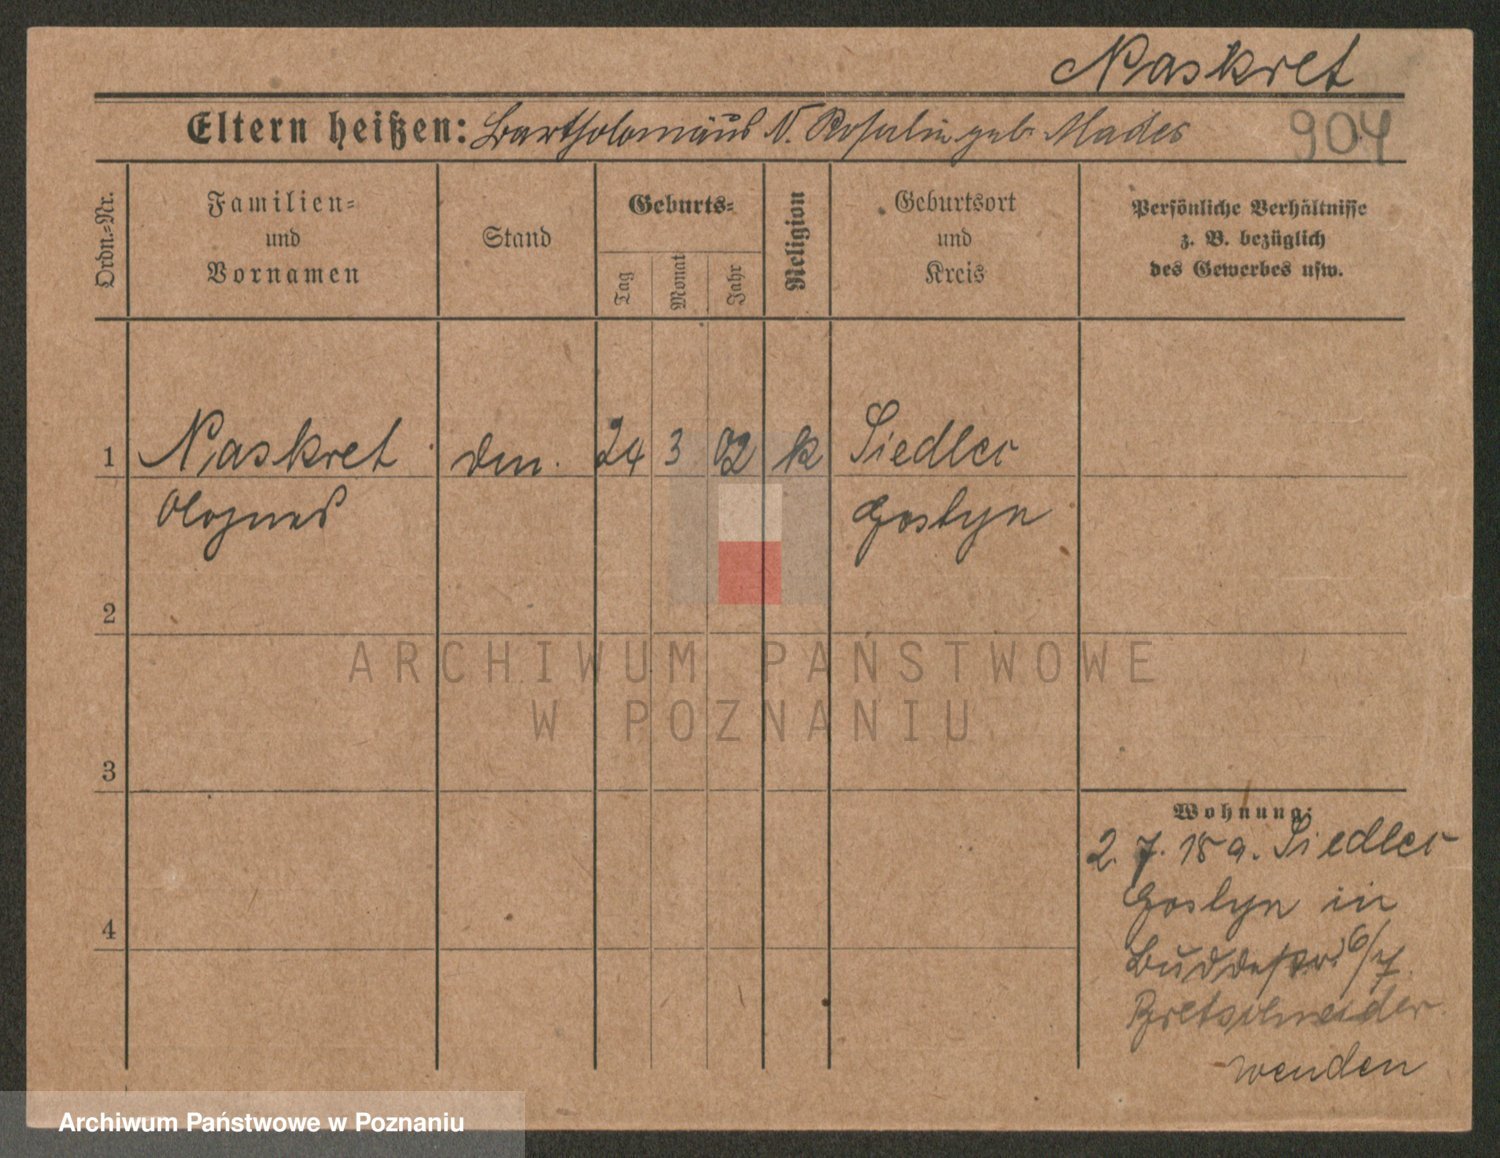 Naskret
Eltern heißen: Bartholomäus N. Rosalie geb. Mader
904
Ordn.-Nr.
Familien-
und
Vornamen
Stand
Geburts-
Tag
Monat
Jahr
Religion
Geburtsort
und
Kreis
Persönliche Verhältnisse
z. B. bezüglich
des Gewerbes usw.
1 Naskret den. 24 3 02 k Siedlec
Agnes Gostyn
2
3
4
Wohnung:
2. 7. 18 a. Siedlec
Gostyn in
6/7.
Bretschneider
wenden
ARCHIWUM PAŃSTWOWE
W POZNANIU
Archiwum Państwowe w Poznaniu